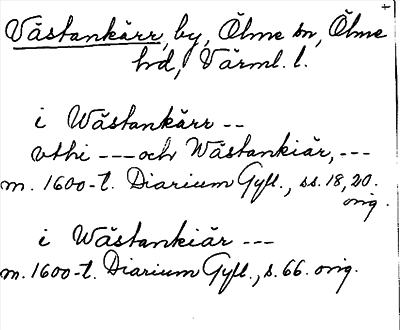 Västankärr, by, Ölme sn, Ölme
hd, Värml. l.
i Wästankärr --
vthi --- och Wästankiär, ---
m. 1600-t. Diarium Gyll., ss. 18, 20.
orig.
i Wästankiär ---
m. 1600-t. Diarium Gyll., s. 66. orig.